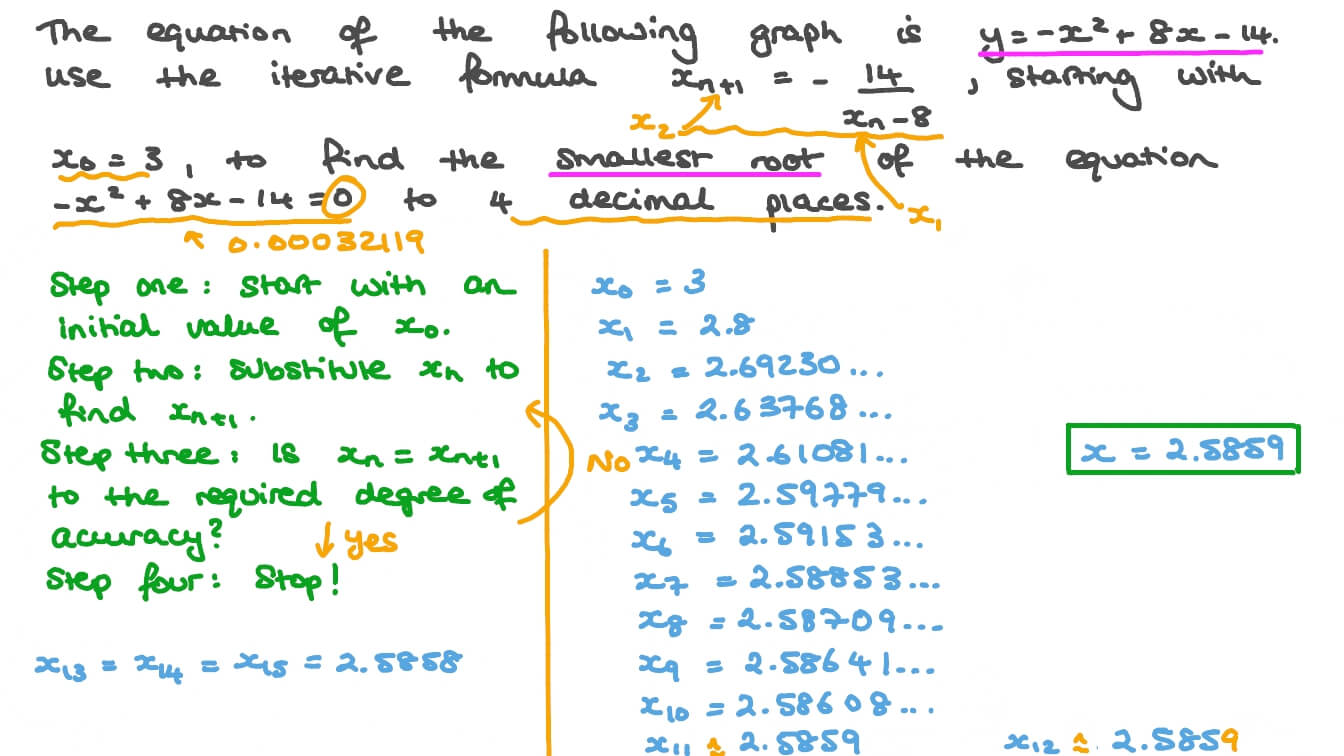 The equation of the following graph is y = -x² + 8x - 14.
use the iterative formula xₙ₊₁ = - 14/(xₙ - 8) , starting with
x₂
x₀ = 3 , to find the smallest root of the equation
-x² + 8x - 14 = 0 to 4 decimal places.
x₁
0.00032119
Step one : start with an
initial value of x₀.
Step two : substitute xₙ to
find xₙ₊₁.
Step three : is xₙ = xₙ₊₁
to the required degree of
accuracy?
No
yes
Step four : Stop!
x₁₃ = x₁₄ = x₁₅ = 2.5858
x₀ = 3
x₁ = 2.8
x₂ = 2.69230...
x₃ = 2.63768...
x₄ = 2.61081...
x₅ = 2.59779...
x₆ = 2.59153...
x₇ = 2.58853...
x₈ = 2.58709...
x₉ = 2.58641...
x₁₀ = 2.58608...
x₁₁ ≈ 2.5859
x₁₂ ≈ 2.5859
x = 2.5859